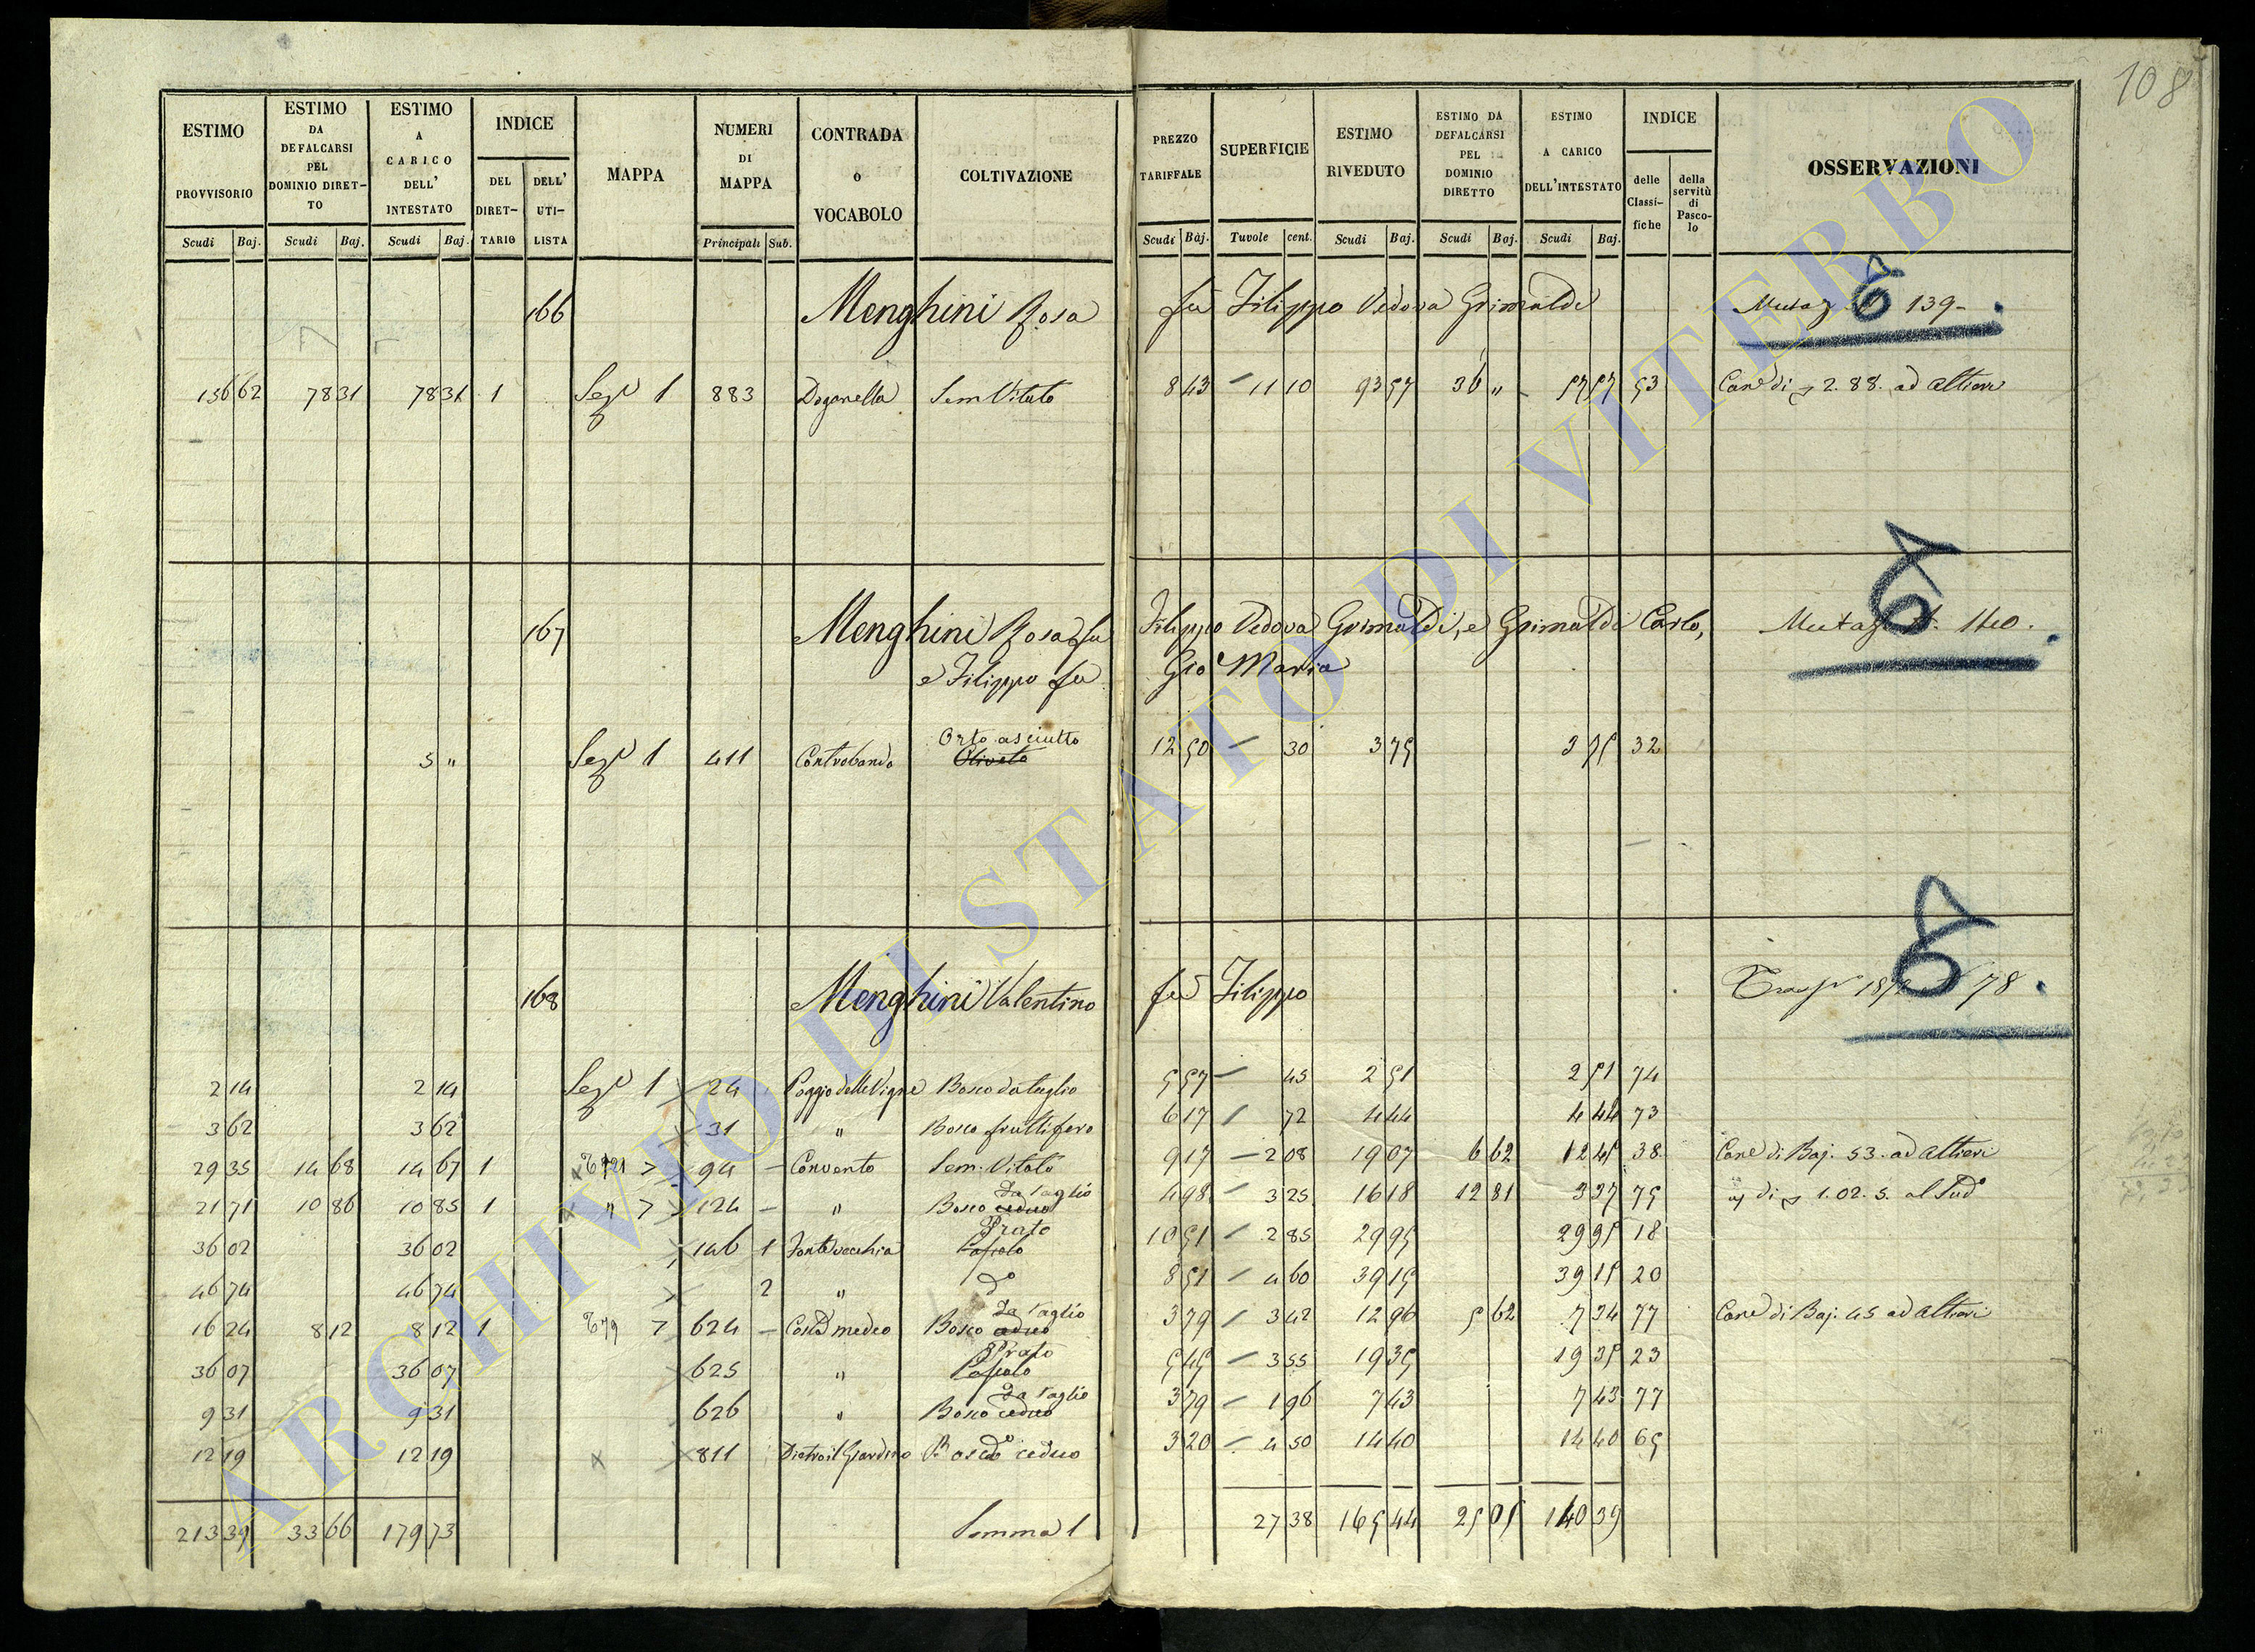 108
ESTIMO PROVVISORIO Scudi Baj.
ESTIMO DA DEFALCARSI PEL DOMINIO DIRETTO Scudi Baj.
ESTIMO A CARICO DELL' INTESTATO Scudi Baj.
INDICE DEL DIRETTARIO DELL' UTILISTA
MAPPA
NUMERI DI MAPPA Principali Sub.
CONTRADA o VOCABOLO
COLTIVAZIONE
PREZZO TARIFFALE Scudi Baj.
SUPERFICIE Tavole cent.
ESTIMO RIVEDUTO Scudi Baj.
ESTIMO DA DEFALCARSI PEL DOMINIO DIRETTO Scudi Baj.
ESTIMO A CARICO DELL'INTESTATO Scudi Baj.
INDICE delle Classifiche della servitù di Pascolo
OSSERVAZIONI
166 Menghini Rosa fu Filippo Vedova Grimaldi 139
156 62 78 31 78 31 1 Sez.e 1 883 Doganella Sem. Vitato 8 43 11 10 93 57 36 " 57 57 53 Cane di 2. 88. ad Altieri
167 Menghini Rosa fu Filippo Vedova Grimaldi, e Grimaldi Carlo, 140.
e Filippo fu Gio Maria
5 " Sez.e 1 411 Contrabando Orto asciutto Oliveto 12 50 30 3 75 3 75 32
168 Menghini Valentino fu Filippo 78.
2 14 2 14 Sez.e 1 24 Poggio delle Vigne Bosco da taglio 5 57 45 2 51 2 51 74
3 62 3 62 31 " Bosco fruttifero 6 17 72 4 44 4 44 73
29 35 14 68 14 67 1 94 Convento Sem. Vitato 9 17 2 08 19 07 6 62 12 45 38 Cane di Baj. 53. ad Altieri
21 71 10 86 10 85 1 " 124 " Bosco ceduo da taglio 4 98 3 25 16 18 12 81 3 37 75 di 1. 02. 5. al Sud.o
36 02 36 02 146 1 Fonte vecchia Pascolo Prato 10 51 2 85 29 95 29 95 18
46 74 46 74 2 " d.o 8 51 4 60 39 15 39 15 20
16 24 8 12 8 12 1 679 624 Bosco ceduo da taglio 3 79 3 42 12 96 5 62 7 34 77 Cane di Baj. 45 ad Altieri
36 07 36 07 625 " Pascolo Prato 5 45 3 55 19 35 19 35 23
9 31 9 31 626 " Bosco ceduo da taglio 3 79 1 96 7 43 7 43 77
12 19 12 19 811 Dietro il Giardino Bosco ceduo 3 20 4 50 14 40 14 40 65
213 39 33 66 179 73 Somma 1 27 38 165 44 25 05 140 39
ARCHIVIO DI STATO DI VITERBO